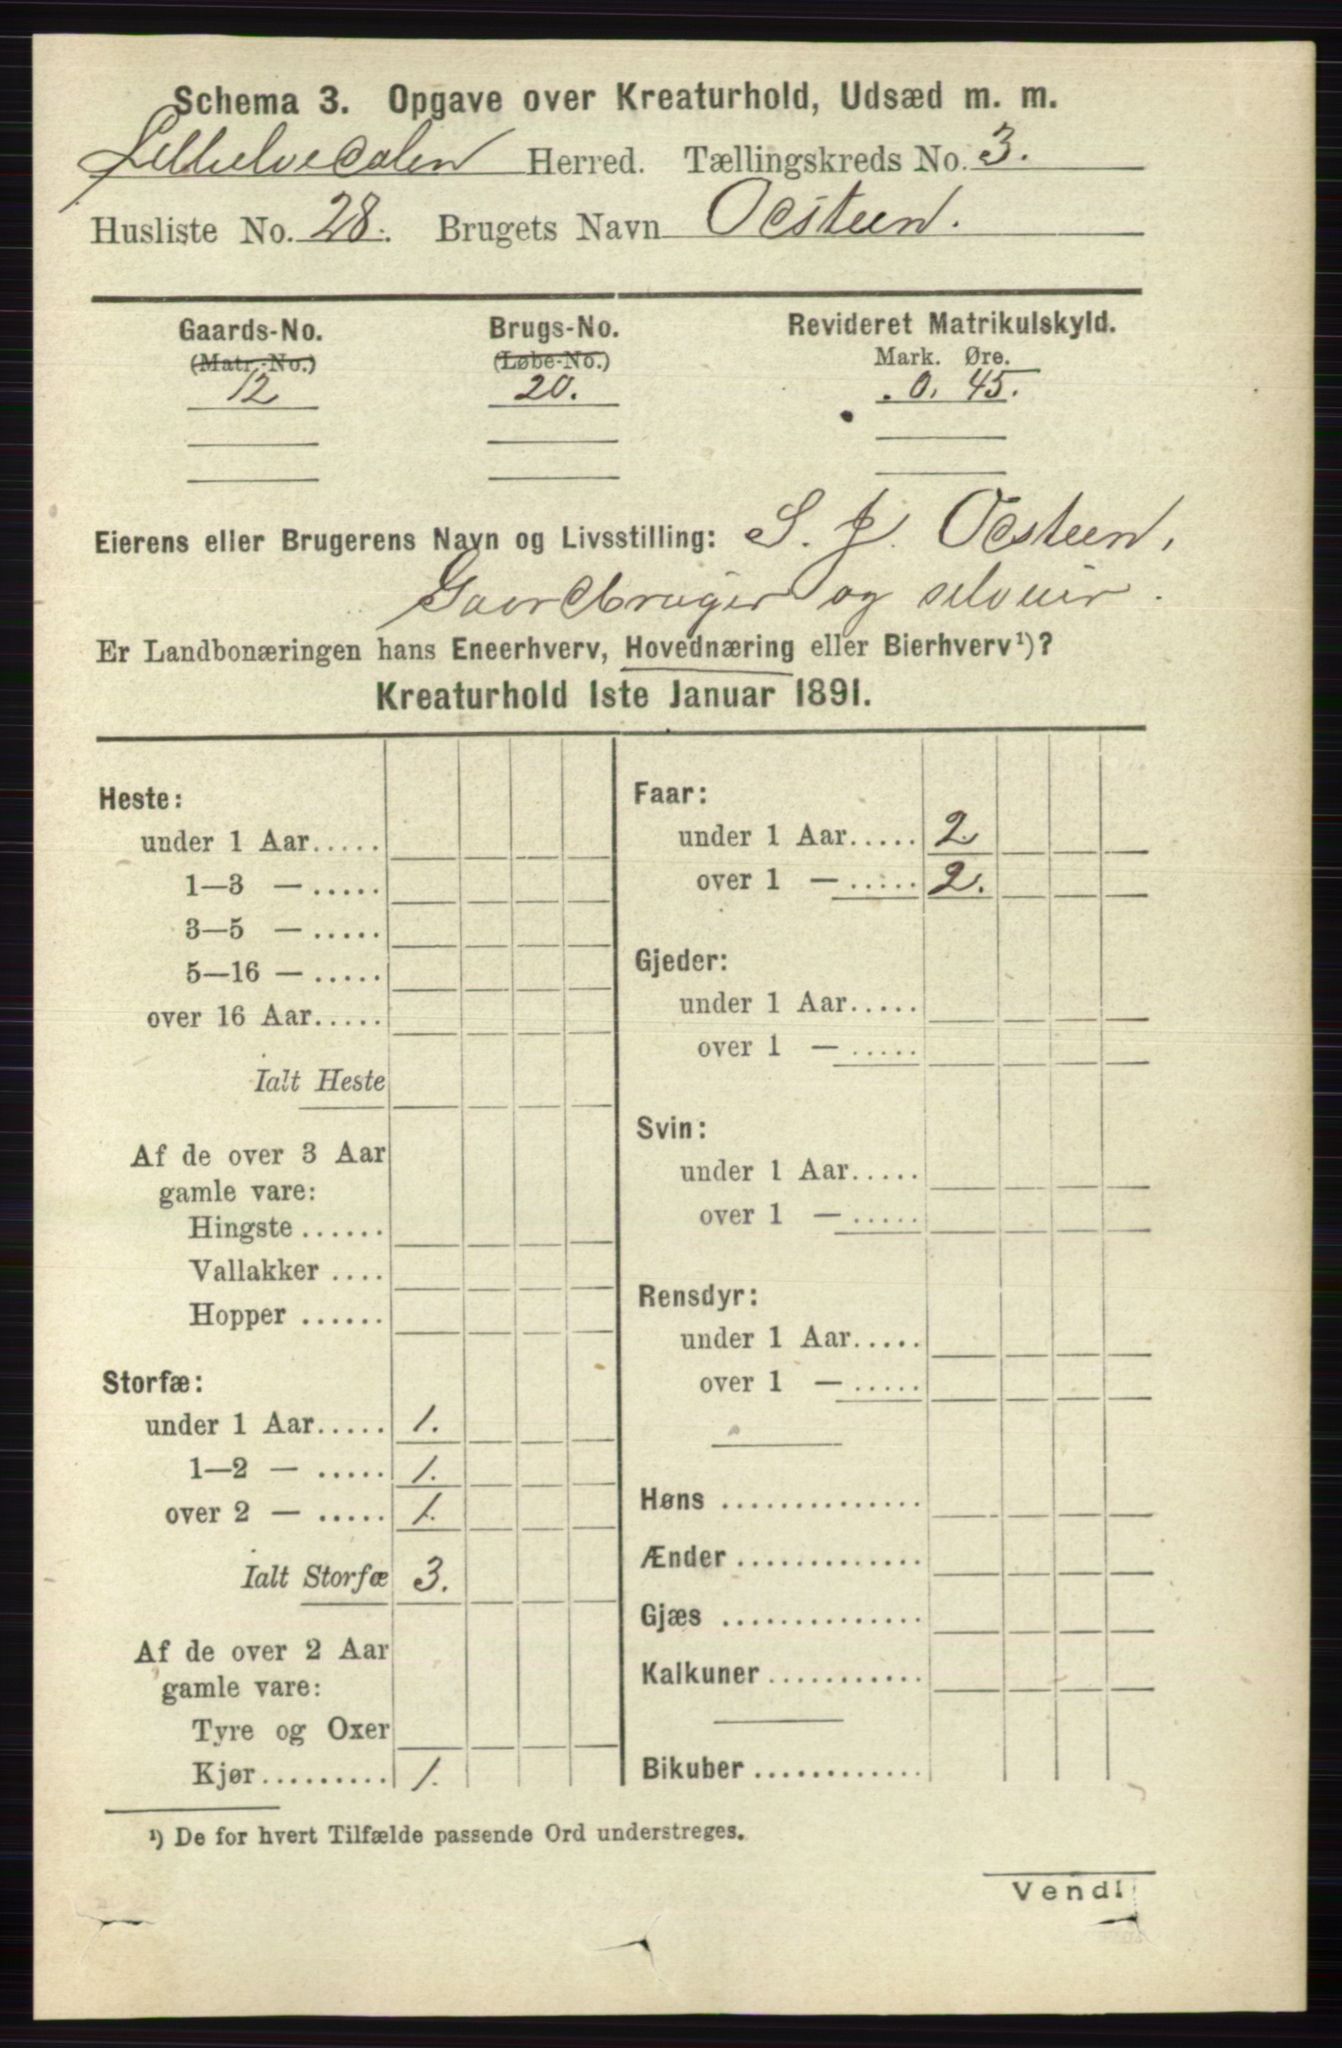 Schema 3. Opgave over Kreaturhold, Udsæd m. m.
Lilleelvedalen Herred. Tællingskreds No. 3.
Husliste No. 28. Brugets Navn Oesteen.
Gaards-No. Brugs-No. Revideret Matrikulskyld.
(Matr.-No.) (Løbe-No.) Mark. Øre.
12 20. 0. 45.
Eierens eller Brugerens Navn og Livsstilling: S. J. Oesteen,
Gaardbruger og selveier.
Er Landbonæringen hans Eneerhverv, Hovednæring eller Bierhverv¹)?
Kreaturhold 1ste Januar 1891.
Heste:
under 1 Aar.....
1—3 — .....
3—5 — .....
5—16 — .....
over 16 Aar.....
Ialt Heste
Af de over 3 Aar
gamle vare:
Hingste ......
Vallakker ....
Hopper ......
Storfæ:
under 1 Aar..... 1.
1—2 — ..... 1.
over 2 — ..... 1.
Ialt Storfæ 3.
Af de over 2 Aar
gamle vare:
Tyre og Oxer
Kjør......... 1.
Faar:
under 1 Aar..... 2.
over 1 — ..... 2.
Gjeder:
under 1 Aar.....
over 1 — .....
Svin:
under 1 Aar.....
over 1 — .....
Rensdyr:
under 1 Aar.....
over 1 — .....
Høns ..............
Ænder .............
Gjæs ..............
Kalkuner ...........
Bikuber ............
¹) De for hvert Tilfælde passende Ord understreges.
Vend!